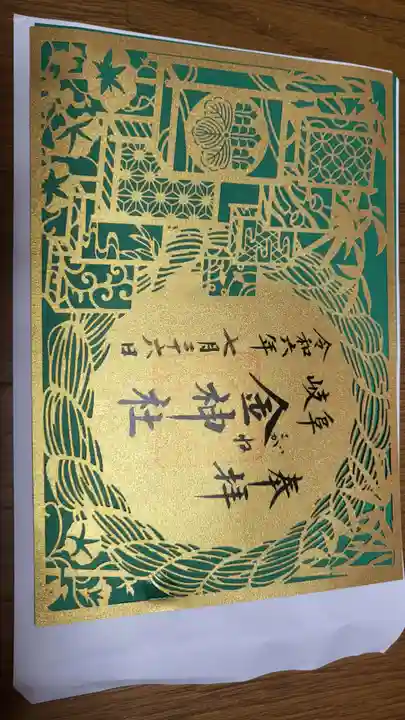 奉拝
岐阜
金神社
こがね
令和六年
七月二十六日